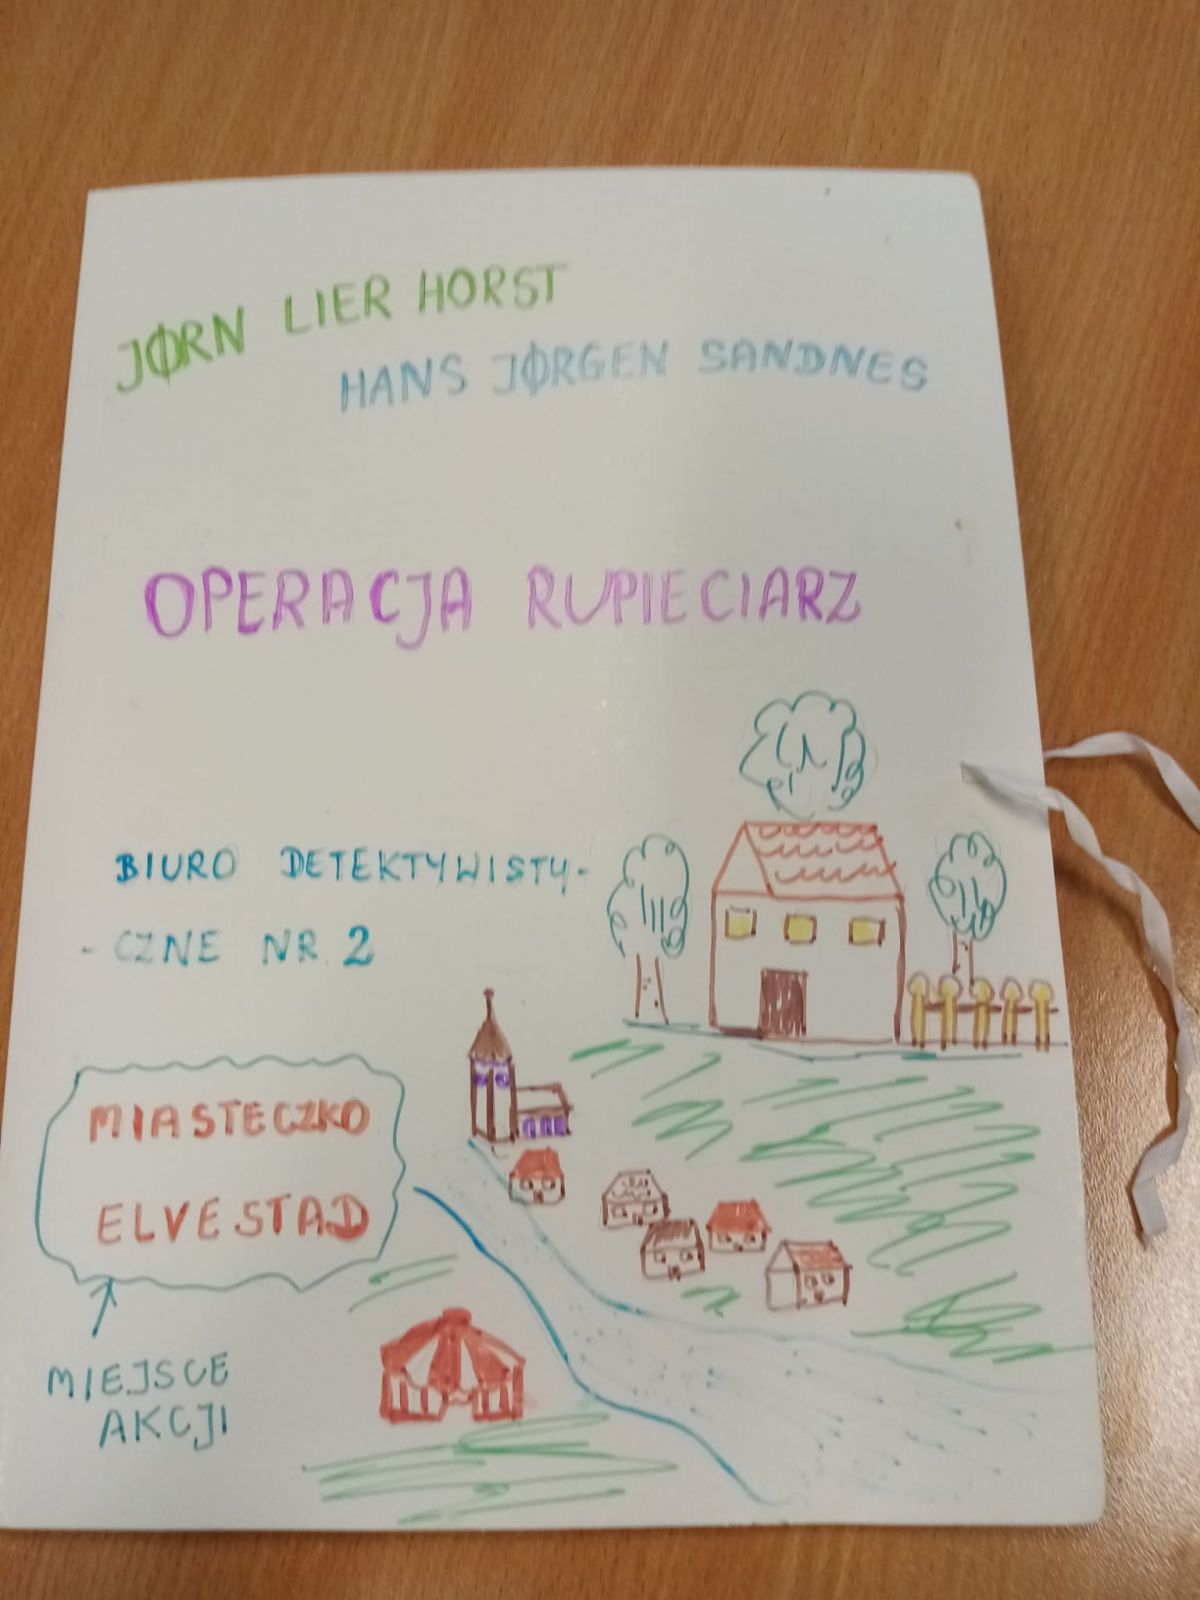 JØRN LIER HORST
HANS JØRGEN SANDNES
OPERACJA RUPIECIARZ
BIURO DETEKTYWISTY-
- CZNE NR. 2
MIASTECZKO
ELVESTAD
MIEJSCE
AKCJI